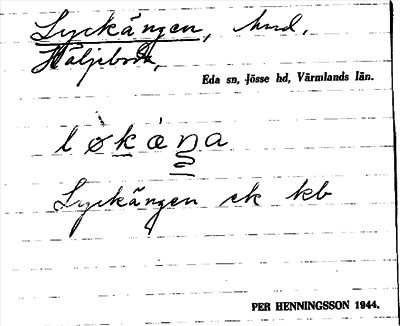 Lyckängen, hmd,
Häljeboda,
Eda sn, Jösse hd, Värmlands län.
Lyckängen ek kb
PER HENNINGSSON 1944.